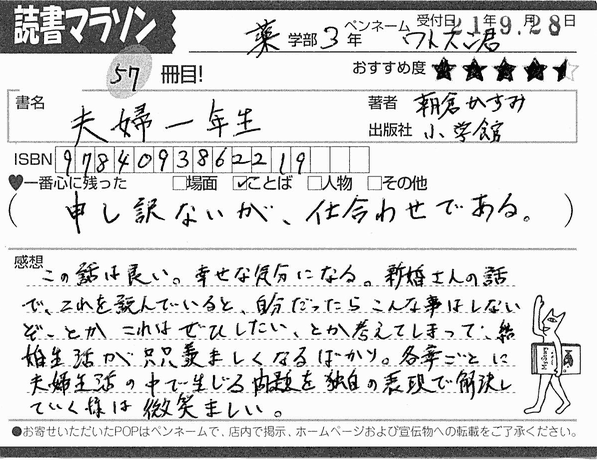 読書マラソン
薬 学部 3 年 ペンネーム ワトスン君 受付日 21年9月28日
57 冊目!
おすすめ度 ★★★★★
書名 夫婦一年生
著者 朝倉かすみ
出版社 小学館
ISBN 9784093862219
♥一番心に残った □場面 ☑ことば □人物 □その他
(申し訳ないが、仕合わせである。)
感想
この話は良い。幸せな気分になる。新婚さんの話
で、これを読んでいると、自分だったらこんな事はしない
ぞ、とか これはぜひしたい、とか考えてしまって、結
婚生活が只只羨ましくなるばかり。各章ごとに
夫婦生活の中で生じる問題を独自の表現で解決し
ていく様は微笑ましい。
●お寄せいただいたPOPはペンネームで、店内で掲示、ホームページおよび宣伝物への転載をご了承ください。